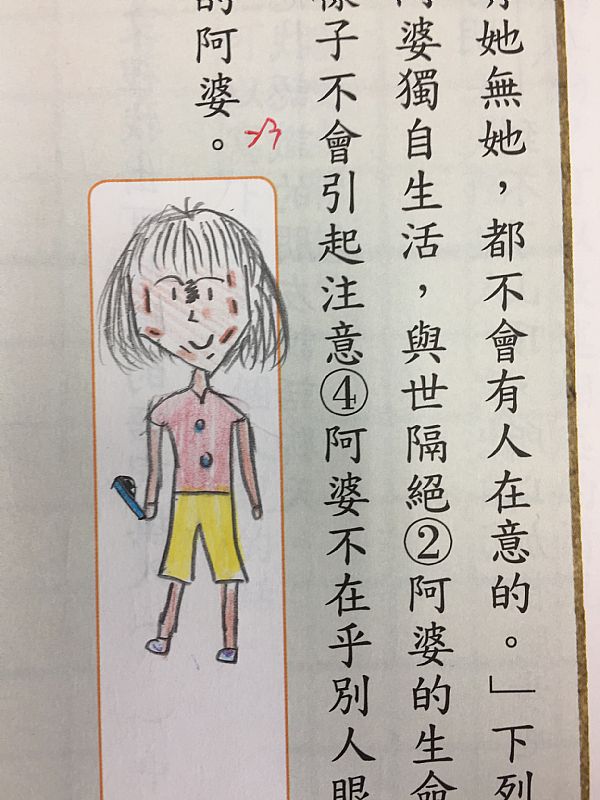 她無她，都不會有人在意的。」下列
阿婆獨自生活，與世隔絕②阿婆的生命
樣子不會引起注意④阿婆不在乎別人眼
的阿婆。